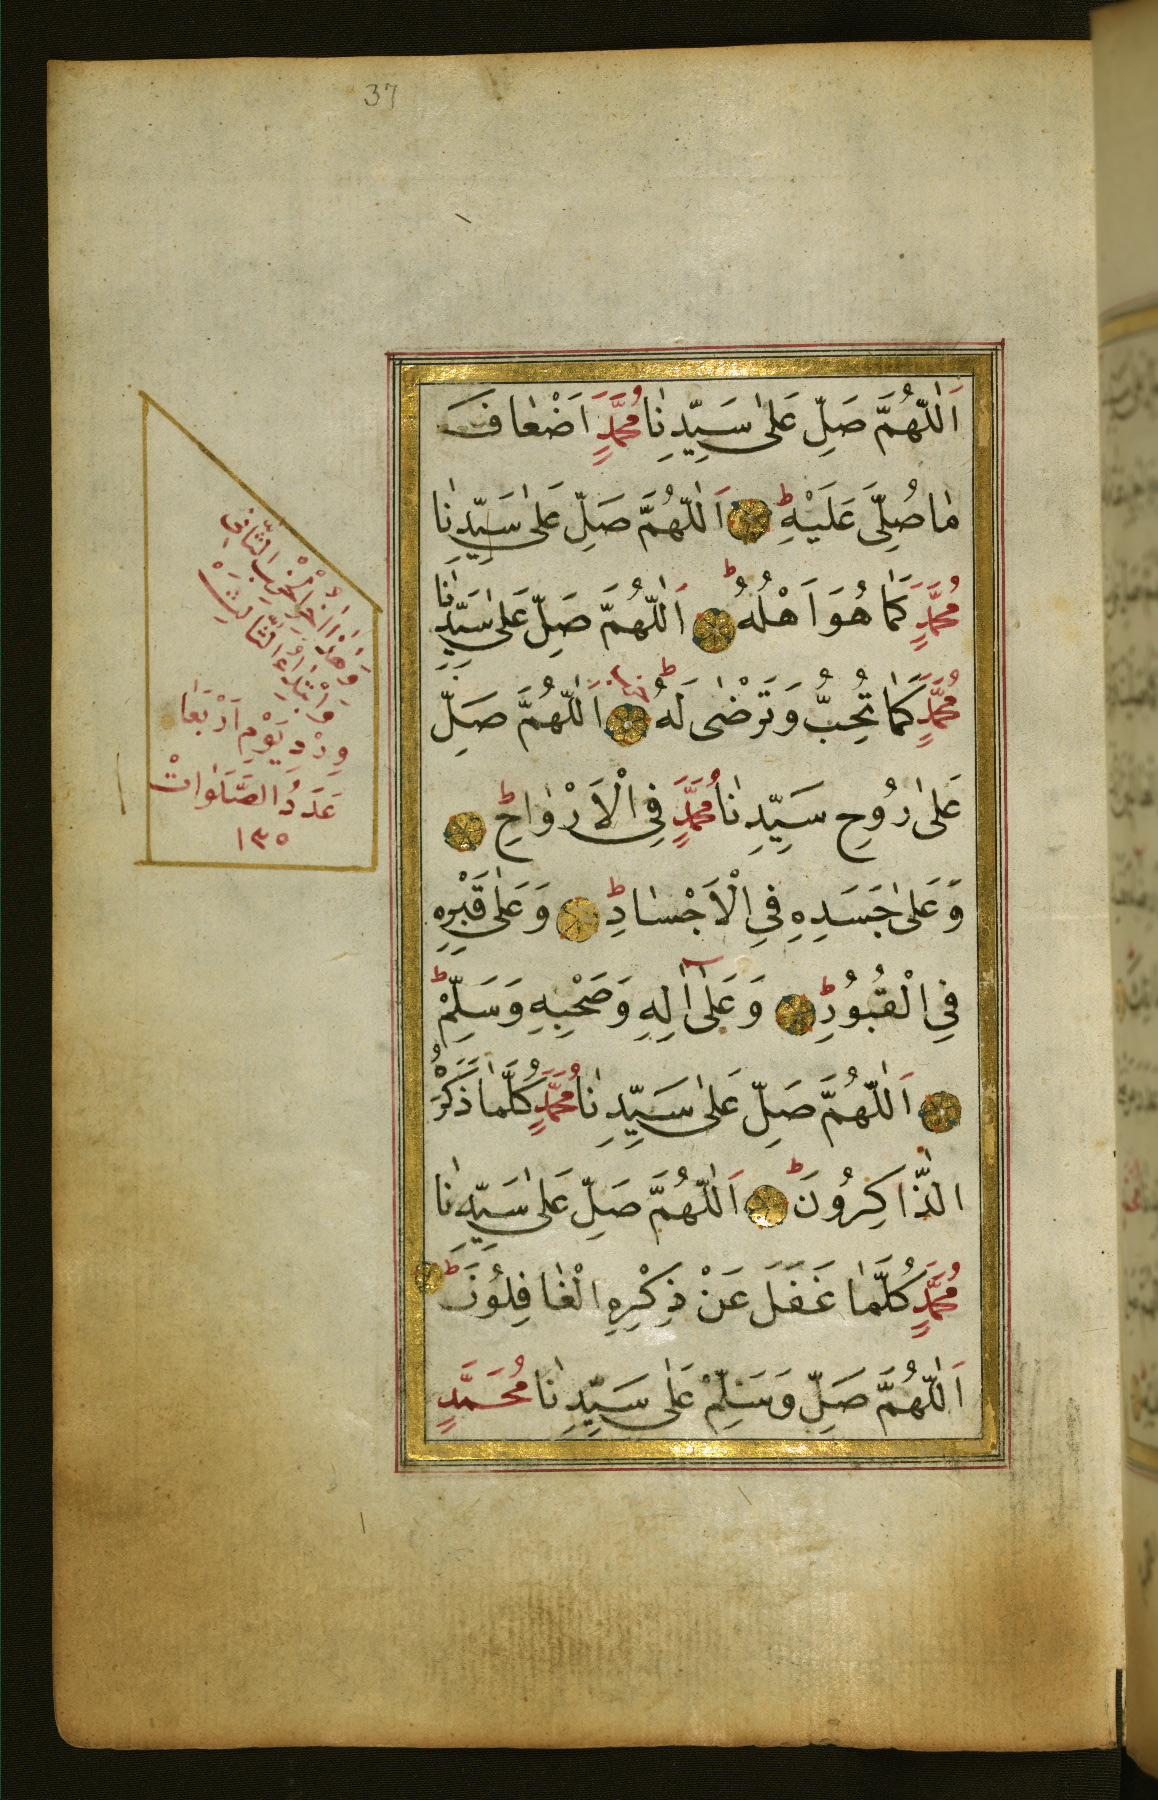 37
اَللّٰهُمَّ صَلِّ عَلٰى سَيِّدِنَا مُحَمَّدٍ اَضْعَافَ
مَا صُلِّىَ عَلَيْهِ ط اَللّٰهُمَّ صَلِّ عَلٰى سَيِّدِنَا
مُحَمَّدٍ كَمَا هُوَ اَهْلُهُ ط اَللّٰهُمَّ صَلِّ عَلٰى سَيِّدِنَا
مُحَمَّدٍ كَمَا تُحِبُّ وَتَرْضٰى لَهُ ط اَللّٰهُمَّ صَلِّ
عَلٰى رُوحِ سَيِّدِنَا مُحَمَّدٍ فِى الْاَرْوَاحِ ط
وَعَلٰى جَسَدِهِ فِى الْاَجْسَادِ ط وَعَلٰى قَبْرِهِ
فِى الْقُبُورِ ط وَعَلٰى اٰلِهِ وَصَحْبِهِ وَسَلِّمْ ط
اَللّٰهُمَّ صَلِّ عَلٰى سَيِّدِنَا مُحَمَّدٍ كُلَّمَا ذَكَرَهُ
الذَّاكِرُونَ ط اَللّٰهُمَّ صَلِّ عَلٰى سَيِّدِنَا
مُحَمَّدٍ كُلَّمَا غَفَلَ عَنْ ذِكْرِهِ الْغَافِلُونَ ط
اَللّٰهُمَّ صَلِّ وَسَلِّمْ عَلٰى سَيِّدِنَا مُحَمَّدٍ
وَهٰذَا اٰخِرُ الْحِزْبِ الثَّانِى
وَابْتِدَاءُ الثَّالِثِ
وِرْدِ يَوْمِ اَرْبَعَا
عَدَدُ الصَّلَوَاتْ
١٣٥